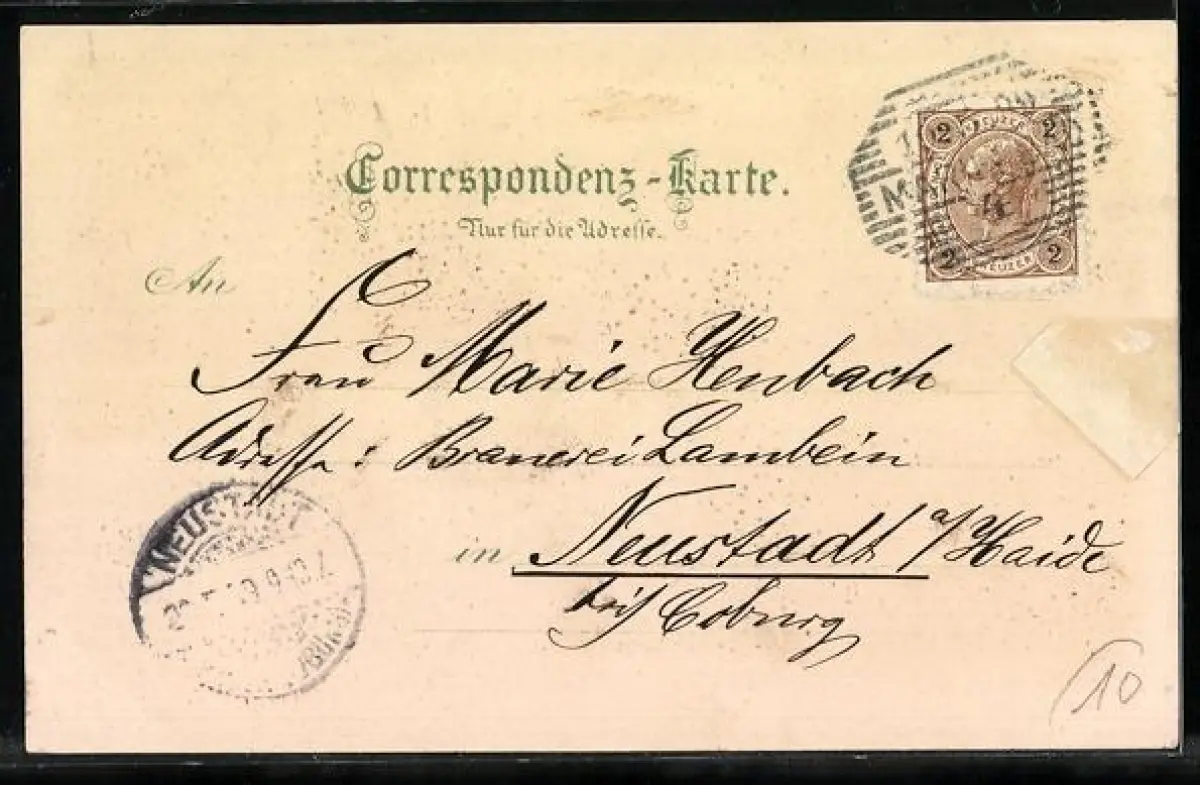 Correspondenz-Karte.
Nur für die Adresse.
2 KREUZER 2
2 KREUZER 2
An
Frau Marie Henbach
Adresse: Brauerei Lambein
in Neustadt a/Haide
bei Coburg
NEUSTADT
(10